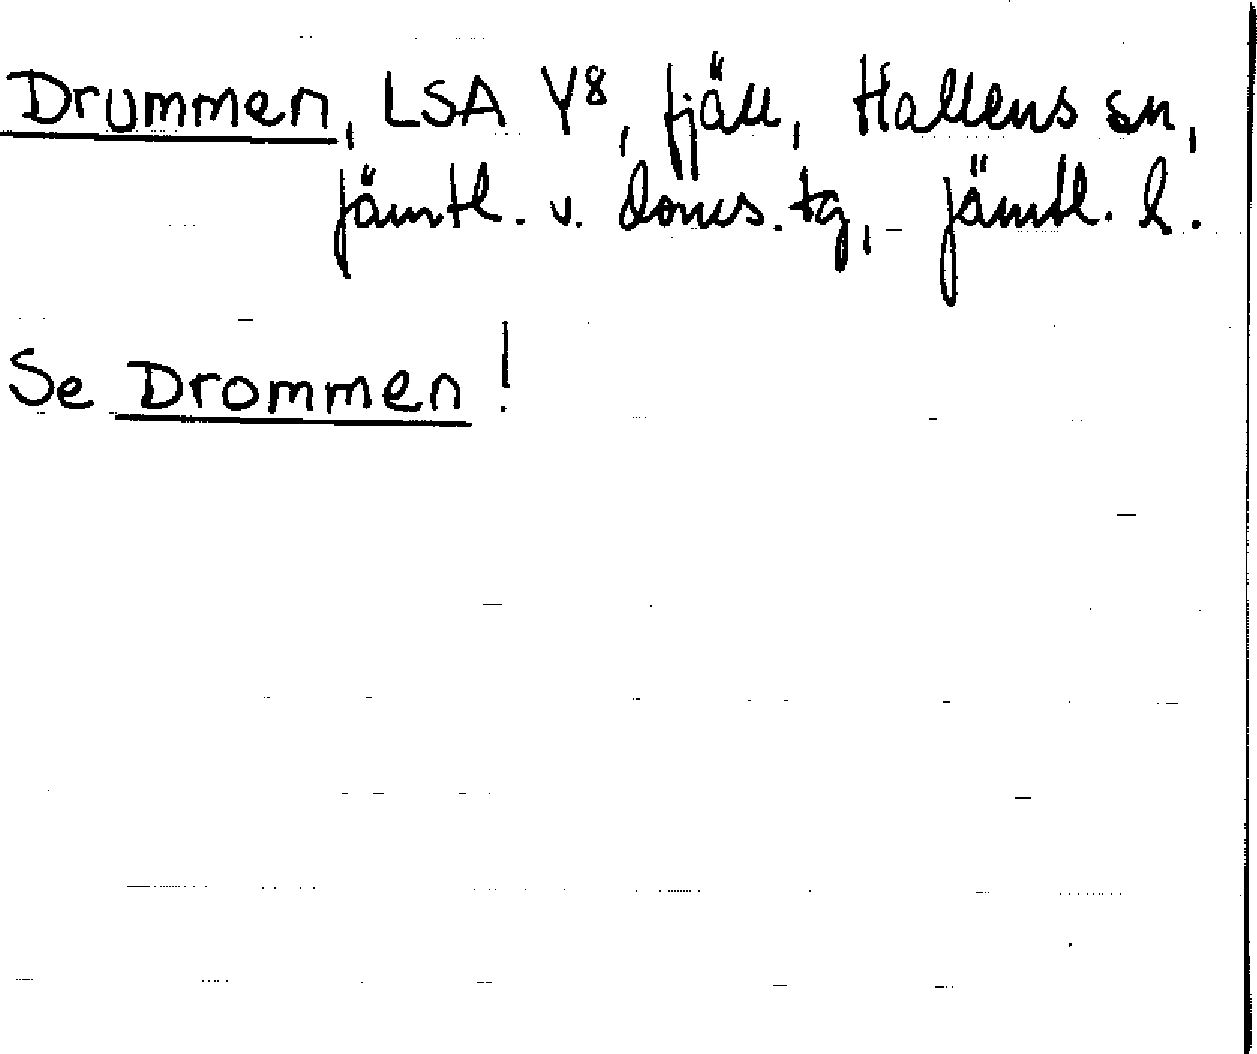 Drummen, LSA Y8, fjäll, Hallens sn,
jämtl. v. doms. tg, jämtl. l.
Se Drommen!